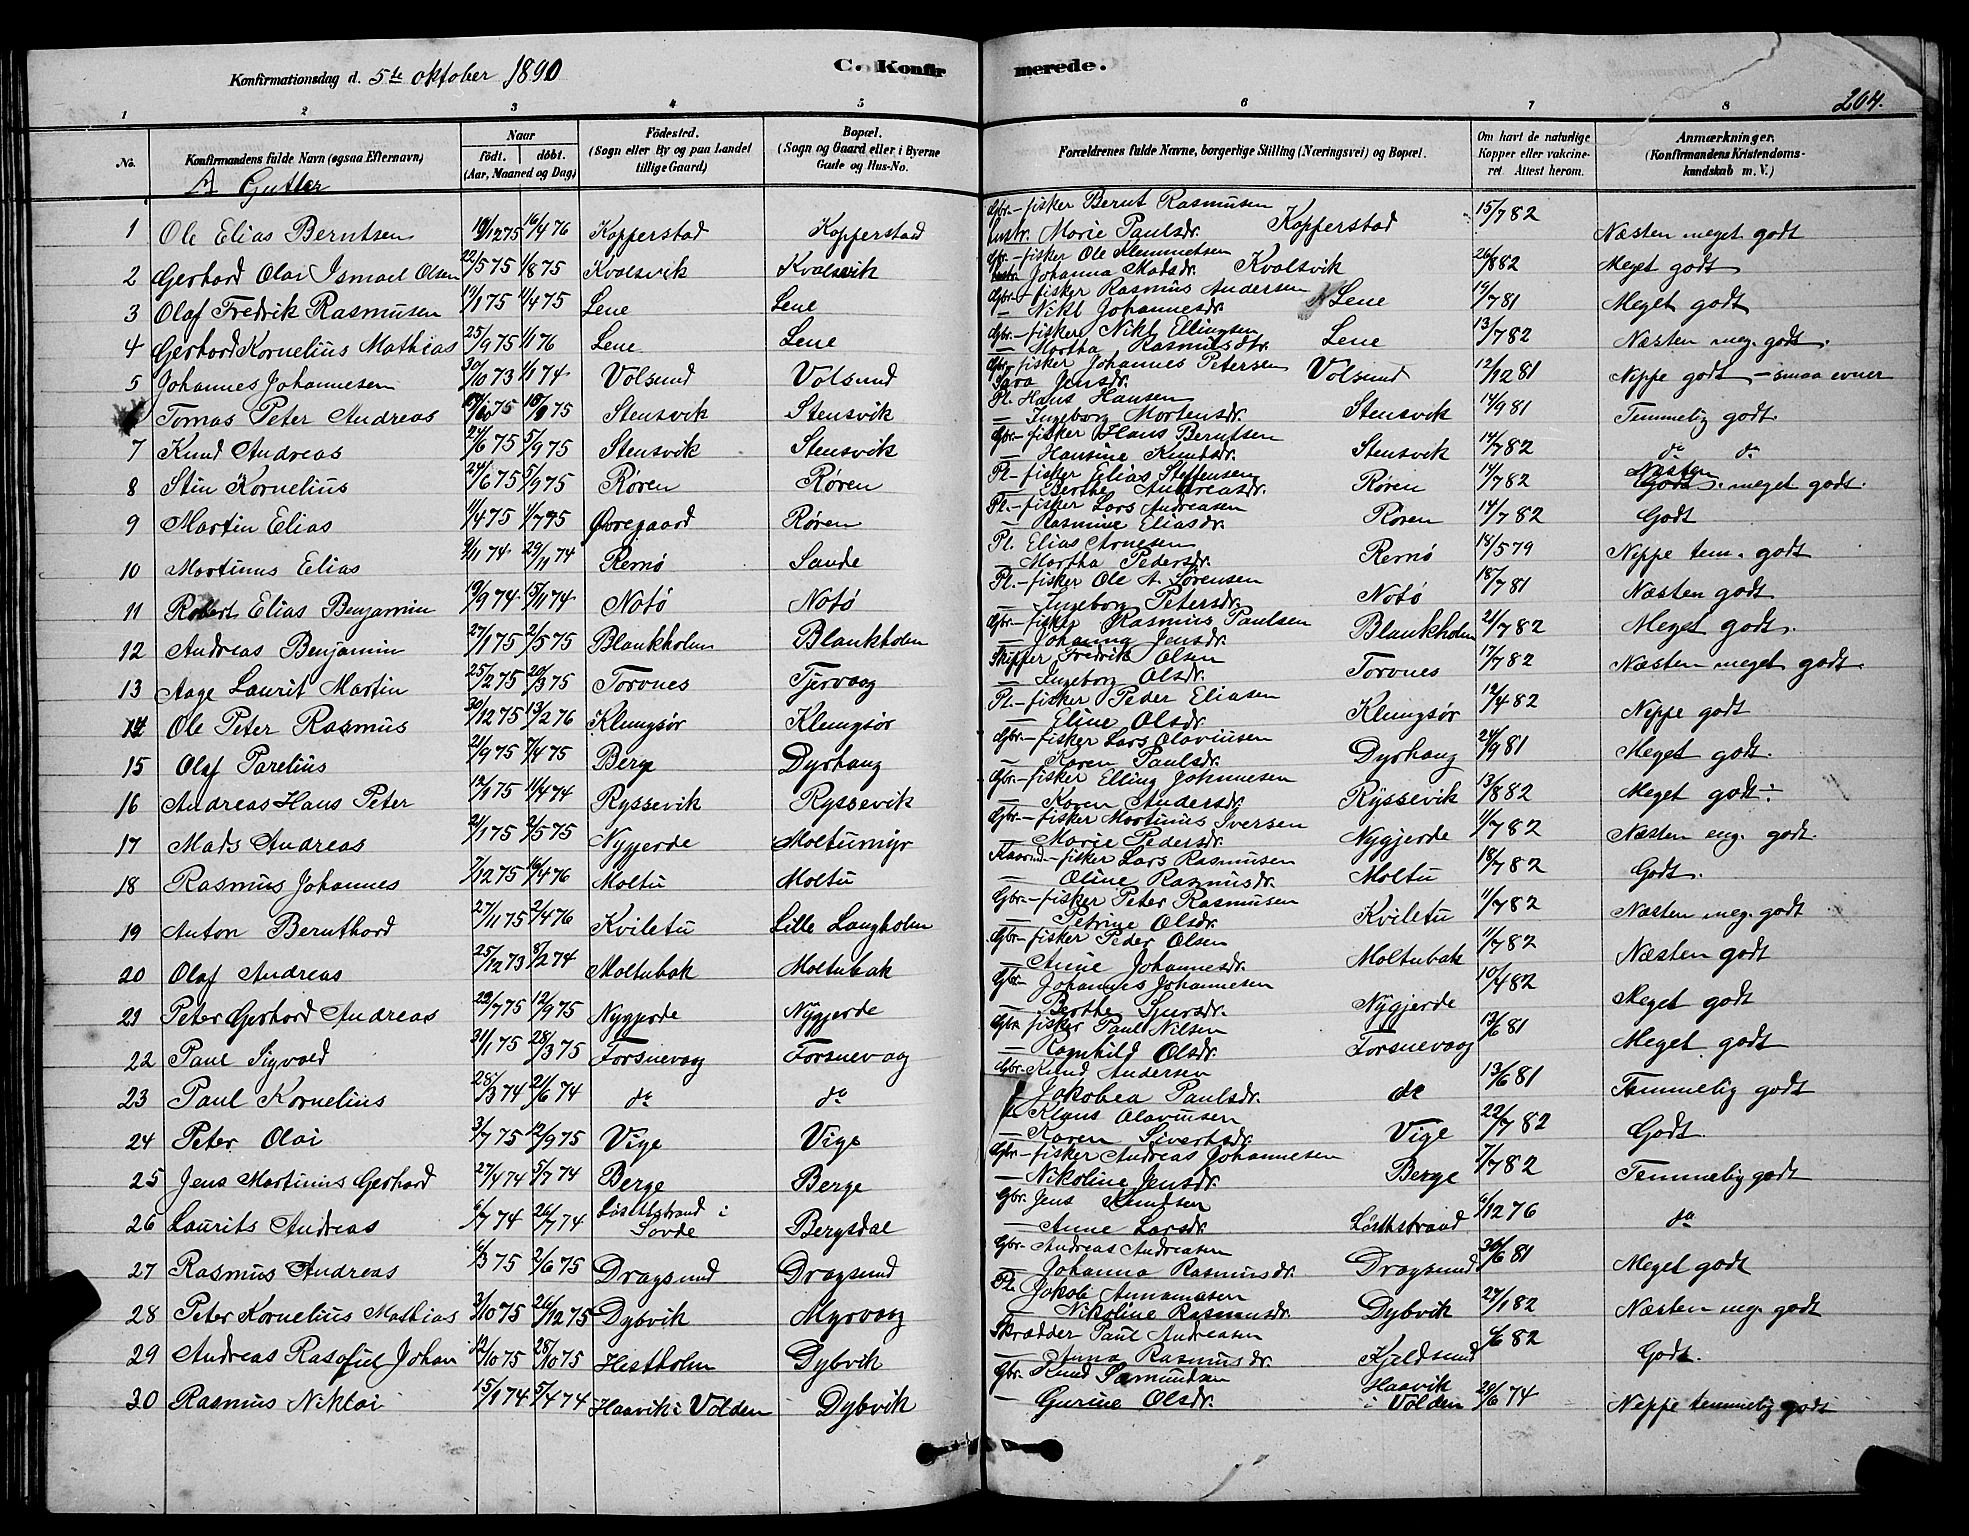 Konfirmationsdag d. 5te oktober 1890
C. Konfirmerede.
204.
1 2 3 4 5 6 7 8
No. Konfirmandens fulde Navn (ogsaa Efternavn) Naar født. døbt. (Aar, Maaned og Dag) Fødested. (Sogn eller By og paa Landet tillige Gaard) Bopæl. (Sogn og Gaard eller i Byerne Gade og Hus-No. Forældrenes fulde Navne, borgerlige Stilling (Næringsvei) og Bopæl. Om havt de naturlige Kopper eller vakcineret Attest herom. Anmærkninger. (Konfirmandens Kristendomskundskab m. V.)
A Gutter
1 Ole Elias Berntsen 16/4 76 Kopperstad Kopperstad Gbr.-fisker Bernt Rasmusen Marie Paulsdr. Kopperstad 15/7 82 Næsten meget godt
2 Gerhard Olai Ismael Olsen 22/5 75 1/8 75 Kvalsvik Kvalsvik Gbr.-fisker Ole Klemmetsen Johanna Madsdr. Kvalsvik 26/8 82 Meget godt
3 Olaf Fredrik Rasmusen 19/1 75 11/4 75 Lene Lene Gbr.-fisker Rasmus Andersen — Nikl Johannesdr. Lene Meget godt
4 Gerhard Kornelius Mathias 25/9 75 1/1 76 Lene Lene Gbr.-fisker Nikl Ellingsen — Martha Rasmusdtr. Lene 13/7 82 Næsten meg. godt.
5 Johannes Johannesen 30/10 73 1/1 74 Volsund Volsund Gbr. fisker Johannes Petersen Sara Jensdr. Volsund 12/12 81 Neppe godt – smaa evner
6 Tomas Peter Andreas Stensvik Stensvik Pl. Hans Hansen — Ingeborg Mortensdr. Stensvik 14/9 81 Temmelig godt.
7 Knud Andreas 24/6 75 5/9 75 Stensvik Stensvik Gbr.-fisker Hans Berntsen — Hansine Knudsdr. Stensvik 14/7 82 do do
8 Stin Kornelius 24/6 75 5/9 75 Røren Røren Pl.-fisker Elias Steffensen — Berthe Andreasdr. Røren 14/7 82 Næsten meget godt.
9 Martin Elias 11/4 75 1/7 75 Øvregaard Røren Pl.-fisker Lars Andreasen — Rasmine Eliasdr. Røren 14/7 82 Godt
10 Martinus Elias 9/11 74 29/11 74 Remø Sande Pl. Elias Arnesen — Martha Pedersdr. Remø 18/5 79 Neppe tem. godt
11 Robert Elias Benjamin 19/9 74 15/11 74 Notø Notø Pl.-fisker Ole A. Sørensen — Ingeborg Petersdr. Notø 18/7 81 Næsten godt
12 Andreas Benjamin 27/1 75 2/5 75 Blankholm Blankholm Gbr.-fisker Rasmus Paulsen — Johanna Jensdr. Blankholm 21/7 82 Meget godt.
13 Aage Laurit Martin 25/2 75 20/3 75 Torvnes Tjervaag Skipper Fredrik Olsen — Ingeborg Olsdr. Torvnes 17/7 82 Næsten meget godt.
14 Ole Peter Rasmus 30/12 75 13/2 76 Klungsør Klungsør Pl.-fisker Peder Eliasen — Eline Olsdr. Klungsør 12/4 82 Neppe godt
15 Olaf Parelius 21/9 75 7/4 75 Berge Dyrhaug Gbr.-fisker Lars Olaviusen — Karen Paulsdr. Dyrhaug 24/9 81 Meget godt.
16 Andreas Hans Peter 17/1 75 11/4 74 Ryssevik Ryssevik Gbr.-fisker Elling Johannesen — Karen Andersdr. Ryssevik 13/8 82 Meget godt
17 Mads Andreas 21/1 75 2/5 75 Nygjerde Moltumyr Gbr.-fisker Martinus Iversen — Marie Pedersdr. Nygjerde 11/7 82 Næsten meg. godt.
18 Rasmus Johannes 7/12 75 16/4 76 Moltu Moltu fisker Lars Rasmusen — Oline Rasmusdr. Moltu 18/7 82 Godt.
19 Anton Bernthard 27/11 75 2/4 76 Kviletu Lille Langholm Gbr.-fisker Peter Rasmusen — Petrine Olsdr. Kviletu 11/7 82 Næsten meg. godt
20 Olaf Andreas 25/12 73 8/2 74 Moltubak Moltubak Gbr.-fisker Peder Olsen — Anne Johannesdr. Moltubak 11/7 82 Næsten godt
21 Peter Gerhard Andreas 22/7 75 12/9 75 Nygjerde Nygjerde Gbr. Johannes Johannesen — Berthe Sjursdr. Nygjerde 10/4 82 Meget godt
22 Paul Sigvald 31/1 75 28/3 75 Forsnevaag Forsnevaag Gbr. fisker Paul Nilsen — Ragnhild Olsdr. Forsnevaag 13/6 81 Meget godt
23 Paul Kornelius 28/3 74 21/6 74 do do Gbr. Knud Andersen Jakobea Paulsdr. do 13/6 81 Temmelig godt
24 Peter Olai 3/7 75 12/9 75 Vige Vige Klaus Olaviusen — Karen Sivertsdr. Vige 22/7 82 Godt.
25 Jens Martinus Gerhard 27/4 74 5/7 74 Berge Berge Gbr.-fisker Andreas Johannesen — Nikoline Jensdr. Berge 7/7 82 Temmelig godt
26 Laurits Andreas 6/7 74 26/7 74 i Sovde Bergsdal Gbr. Jens Knudsen — Anne Larsdr. 6/12 76 do
27 Rasmus Andreas 6/3 75 2/6 75 Dragsund Dragsund Gbr. Andreas Andreasen — Johanna Rasmusdr. Dragsund 30/6 81 Meget godt
28 Peter Kornelius Mathias 3/10 75 26/12 75 Dybvik Myrvaag Pl. Jakob — Nikoline Rasmusdr. Dybvik 27/1 82 Næsten meg. godt
29 Andreas Rasafiel Johan 12/10 75 28/10 75 Hestholm Dybvik Skrædder Paul Andreasen — Anna Rasmusdr. Kjeldsund 6/6 82 Godt.
30 Rasmus Niklai 15/1 74 5/4 74 Haavik i Volden Dybvik Gbr. Knud Samundsen — Gurine Olsdr. Haavik i Volden 20/6 74 Neppe temmelig godt